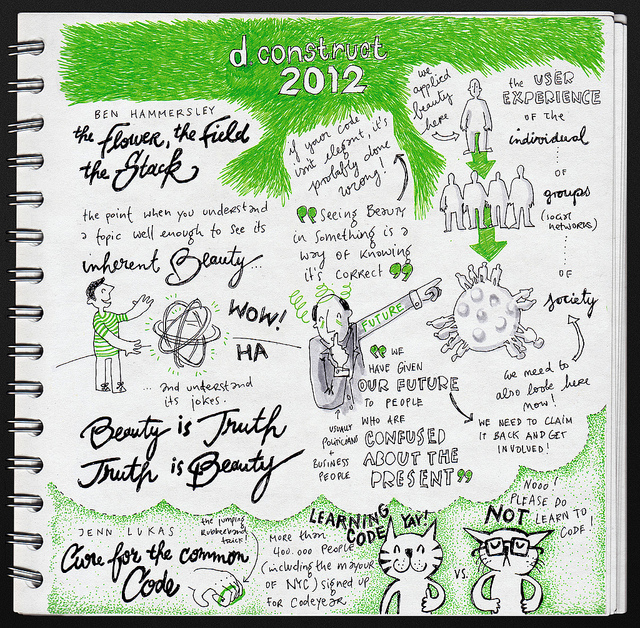 d construct
2012
BEN HAMMERSLEY
the flower, the field
the Stack
the point when you understand
a topic well enough to see its
inherent Beauty...
WOW!
HA
... and understand
its jokes.
Beauty is Truth
Truth is Beauty
if your code
isn't elegant, it's
probably done
wrong!
"Seeing Beauty
in something is a
way of knowing
it's correct"
FUTURE
"WE
HAVE GIVEN
OUR FUTURE
TO PEOPLE
WHO ARE
CONFUSED
ABOUT THE
PRESENT"
USUALLY
POLITICIANS
+
BUSINESS
PEOPLE
we
applied
beauty
here
the USER
EXPERIENCE
OF the
individual
OF
groups
(social
networks)
OF
society
we need to
also look here
now!
WE NEED TO CLAIM
IT BACK AND GET
INVOLVED!
JENN LUKAS
Cure for the common
Code
the jumping
rubberband
trick
More than
400.000 People
(including the mayour
OF NYC) signed up
FOR Codeyear
LEARNING
CODE! YAY!
VS.
NOOO!
PLEASE DO
NOT LEARN TO
CODE!